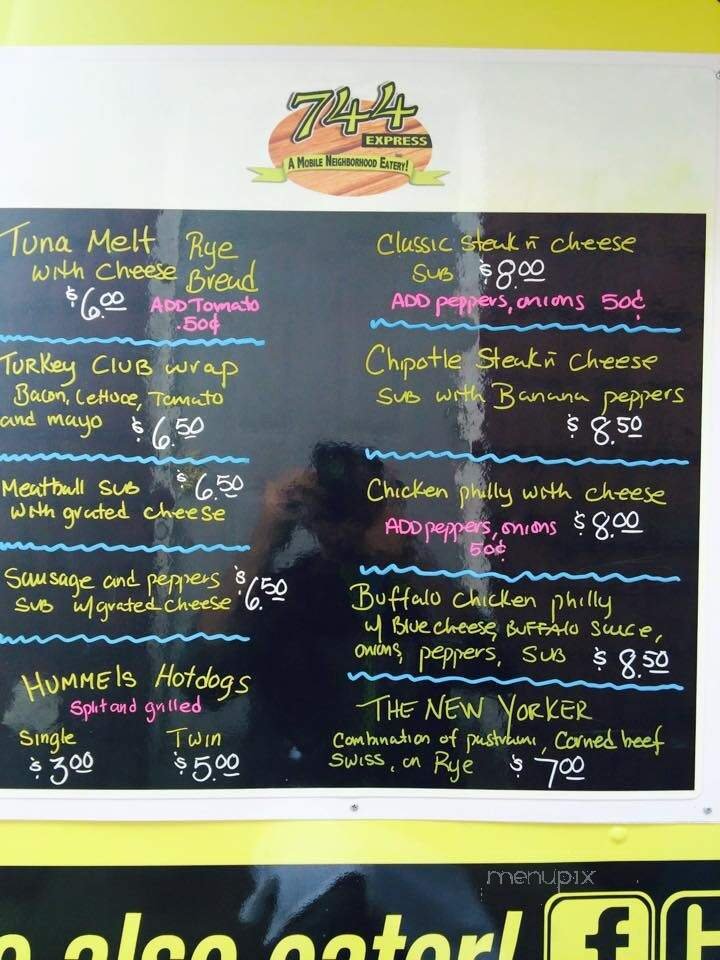 744
EXPRESS
A MOBILE NEIGHBORHOOD EATERY!
Tuna Melt Rye
with cheese Bread
$6.00 ADD Tomato
.50¢
Turkey Club wrap
Bacon, Lettuce, Tomato
and mayo $6.50
Meatball SUB $6.50
with grated cheese
Sausage and peppers $6.50
SUB w/grated cheese
HUMMEls Hotdogs
Split and grilled
Single Twin
$3.00 $5.00
Classic steak n cheese
SUB $8.00
ADD peppers, onions 50¢
Chipotle Steak n cheese
SUB with Banana peppers
$8.50
Chicken philly with cheese
ADD peppers, onions $8.00
50¢
Buffalo chicken philly
w/ Blue cheese, BUFFAlo Sauce,
onions, peppers, SUB $8.50
THE NEW YORKER
Combination of pastrami, Corned beef
SWISS, on Rye $7.00
menupix
also cater! f